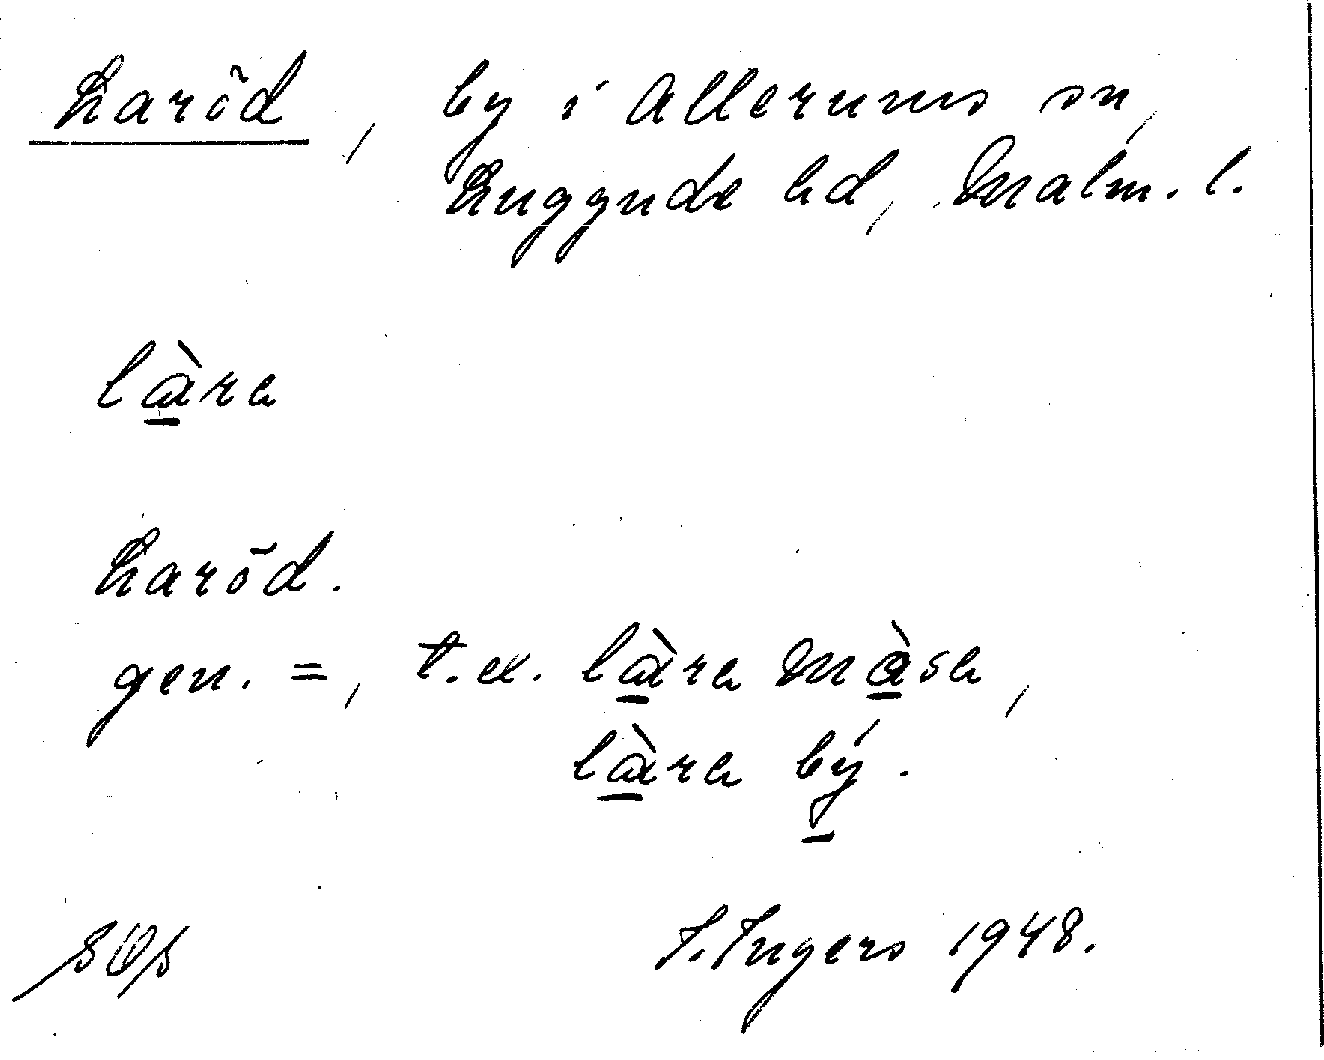 Laröd, by i Allerums sn,
Luggude hd, Malm. l.
làra
Laröd.
gen. =, t.ex. làra Màsa,
làra bý.
I. Ingers 1948.